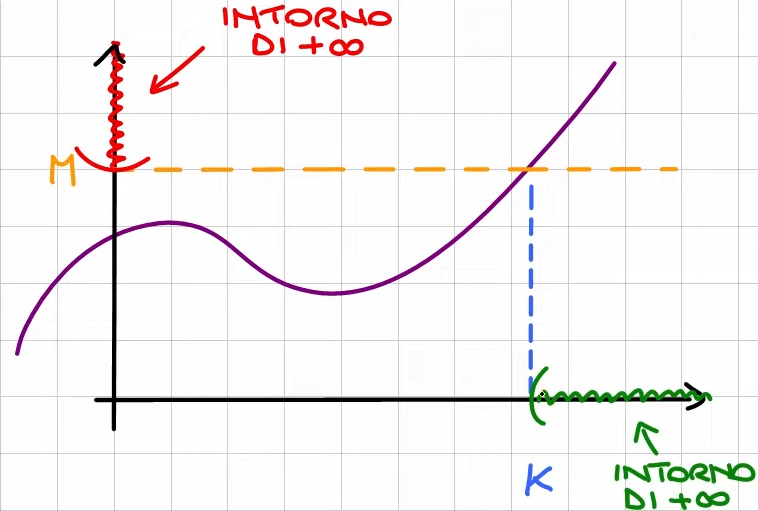 INTORNO
DI +∞
M
K
INTORNO
DI +∞